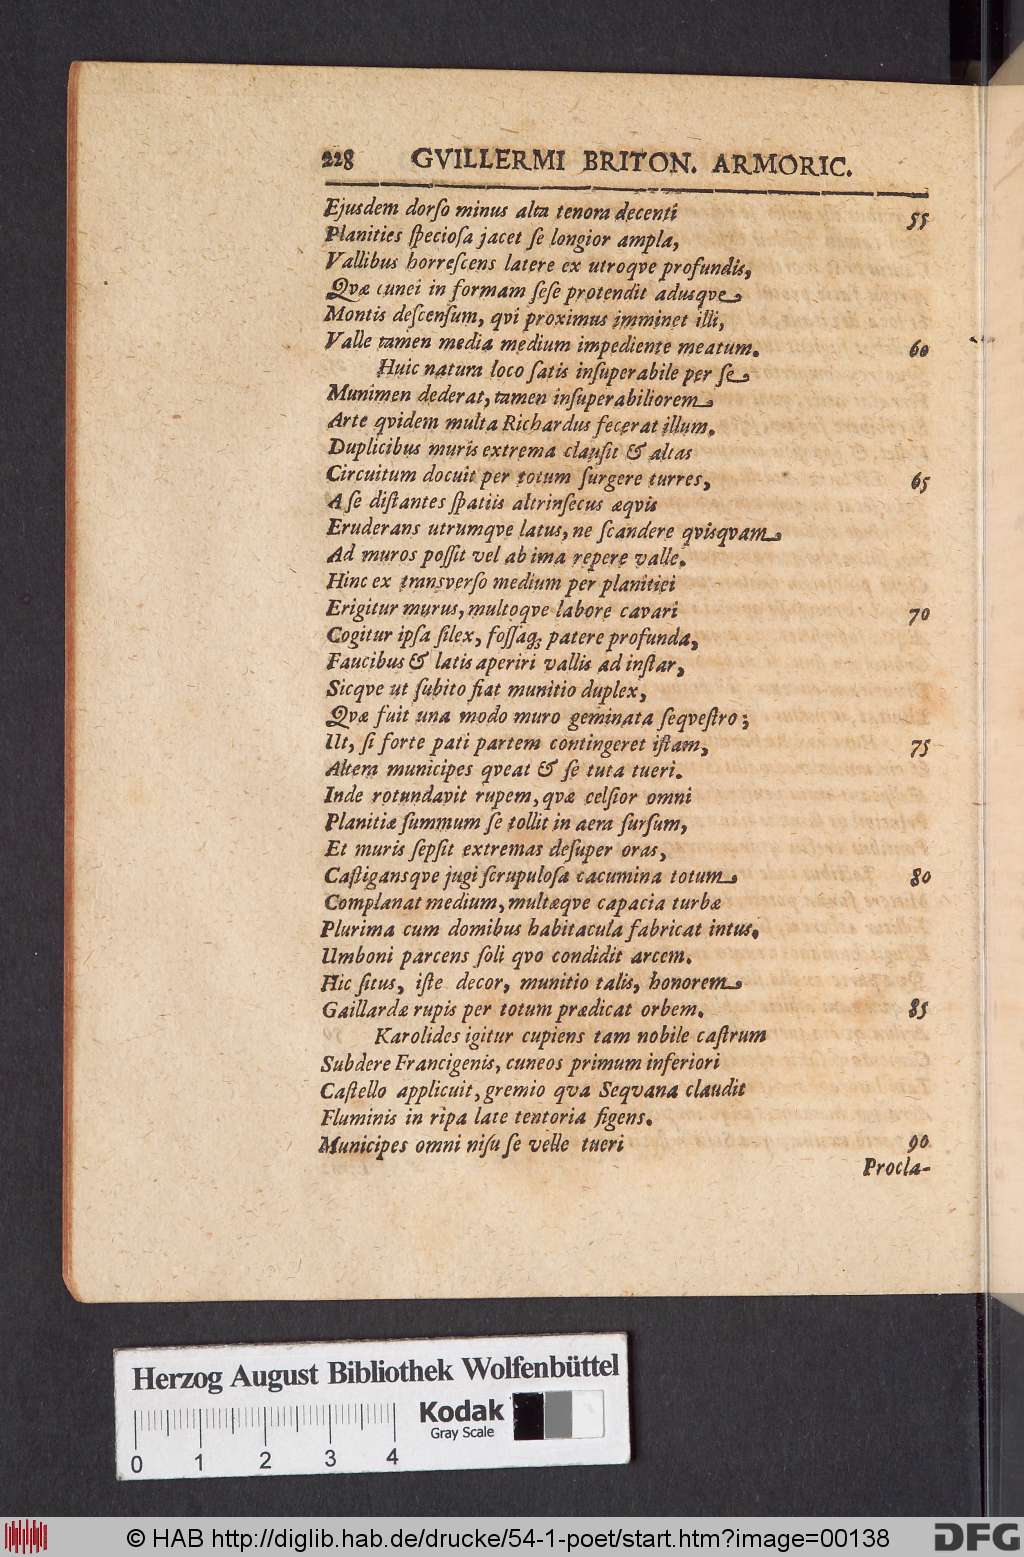 228 GVILLERMI BRITON. ARMORIC.
Ejusdem dorſo minus alta tenora decenti 55
Planities ſpecioſa jacet ſe longior ampla,
Vallibus horreſcens latere ex utroqve profundis,
Qvæ cunei in formam ſeſe protendit adusqve
Montis deſcenſum, qvi proximus imminet illi,
Valle tamen media medium impediente meatum. 60
Huic natura loco ſatis inſuperabile per ſe
Munimen dederat, tamen inſuperabiliorem
Arte qvidem multa Richardus fecerat illum.
Duplicibus muris extrema clauſit & altas
Circuitum docuit per totum ſurgere turres, 65
A ſe diſtantes ſpatiis altrinſecus æqvis
Eruderans utrumqve latus, ne ſcandere qvisqvam
Ad muros poſſit vel ab ima repere valle.
Hinc ex transverſo medium per planitiei
Erigitur murus, multoqve labore cavari 70
Cogitur ipſa ſilex, foſſaq; patere profunda,
Faucibus & latis aperiri vallis ad inſtar,
Sicqve ut ſubito fiat munitio duplex,
Qvæ fuit una modo muro geminata ſeqveſtro;
Ut, ſi forte pati partem contingeret iſtam, 75
Altera municipes qveat & ſe tuta tueri.
Inde rotundavit rupem, qvæ celſior omni
Planitiæ ſummum ſe tollit in aera ſurſum,
Et muris ſepſit extremas deſuper oras,
Caſtigansqve jugi ſcrupuloſa cacumina totum 80
Complanat medium, multæqve capacia turbæ
Plurima cum domibus habitacula fabricat intus.
Umboni parcens ſoli qvo condidit arcem.
Hic ſitus, iſte decor, munitio talis, honorem
Gaillardæ rupis per totum prædicat orbem. 85
Karolides igitur cupiens tam nobile caſtrum
Subdere Francigenis, cuneos primum inferiori
Caſtello applicuit, gremio qva Seqvana claudit
Fluminis in ripa late tentoria figens.
Municipes omni niſu ſe velle tueri 90
Procla-
Herzog August Bibliothek Wolfenbüttel
Kodak
Gray Scale
0 1 2 3 4
© HAB http://diglib.hab.de/drucke/54-1-poet/start.htm?image=00138
DFG